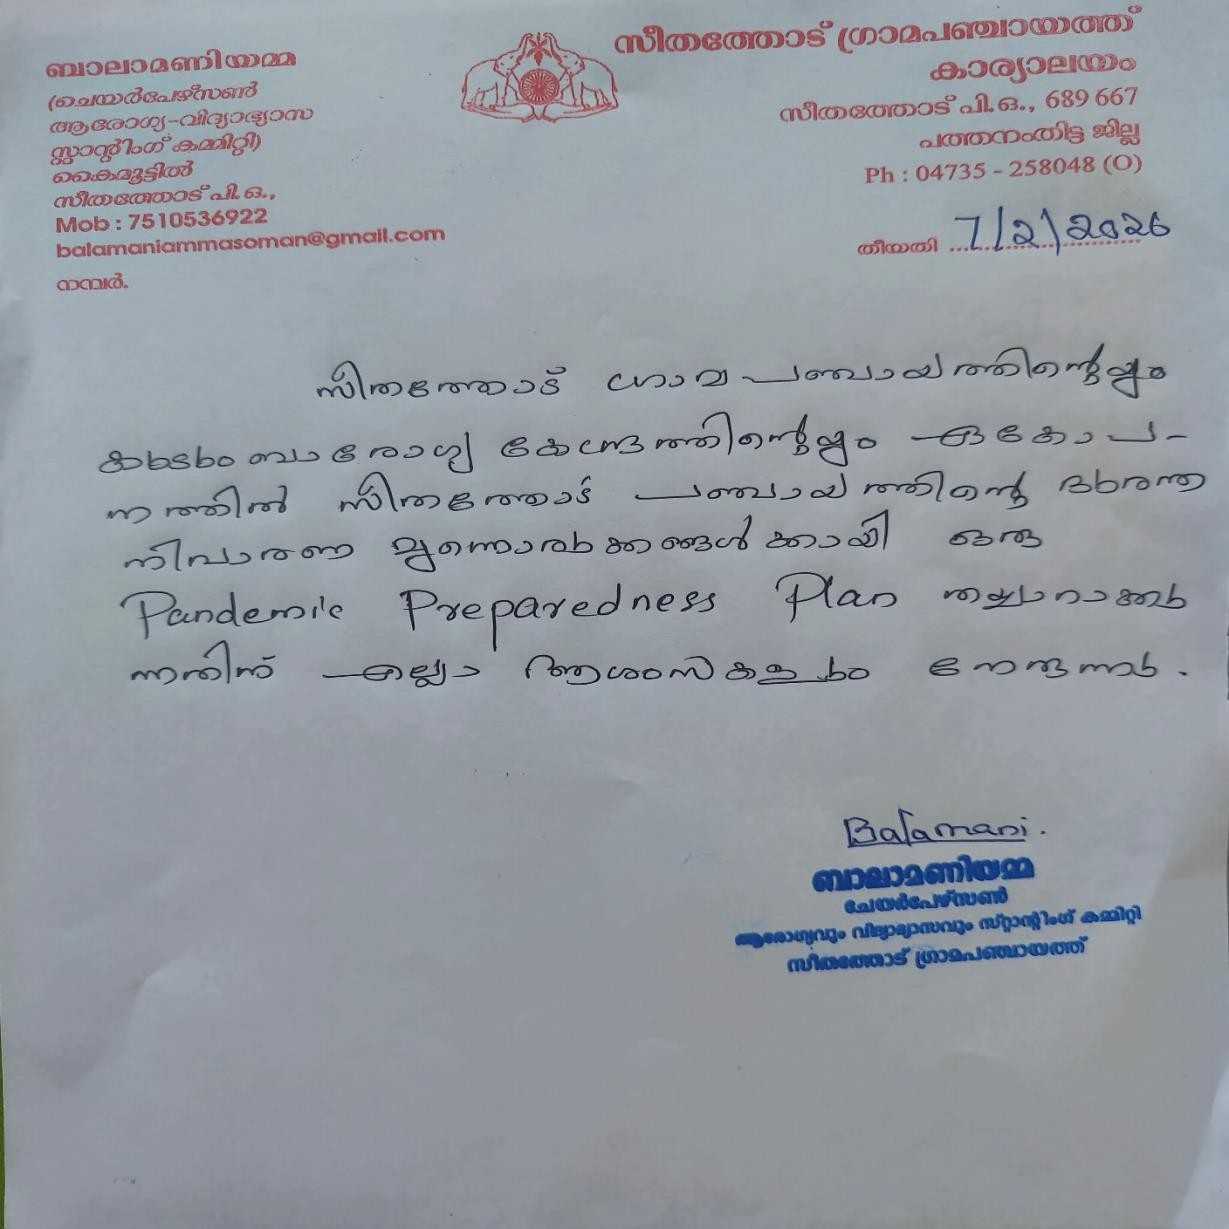 ബാലാമണിയമ്മ
(ചെയർപേഴ്സൺ
ആരോഗ്യ-വിദ്യാഭ്യാസ
സ്റ്റാന്റിംഗ് കമ്മിറ്റി)
കൈമൂട്ടിൽ
സീതത്തോട് പി.ഒ.,
Mob : 7510536922
balamaniammasoman@gmail.com
നമ്പർ.
സീതത്തോട് ഗ്രാമപഞ്ചായത്ത്
കാര്യാലയം
സീതത്തോട് പി.ഒ., 689 667
പത്തനംതിട്ട ജില്ല
Ph : 04735 - 258048 (O)
തീയതി ....7/2/2026
സീതത്തോട് ഗ്രാമപഞ്ചായത്തിന്റെയും
കുടുംബാരോഗ്യ കേന്ദ്രത്തിന്റെയും ഏകോപ-
നത്തിൽ സീതത്തോട് പഞ്ചായത്തിന്റെ ദുരന്ത
നിവാരണ മുന്നൊരുക്കങ്ങൾക്കായി ഒരു
Pandemic Preparedness Plan തയ്യാറാക്കു
ന്നതിന് എല്ലാ ആശംസകളും നേരുന്നു.
Balamani.
ബാലാമണിയമ്മ
ചേയർപേഴ്സൺ
ആരോഗ്യവും വിദ്യാഭ്യാസവും സ്റ്റാന്റിംഗ് കമ്മിറ്റി
സീതത്തോട് ഗ്രാമപഞ്ചായത്ത്